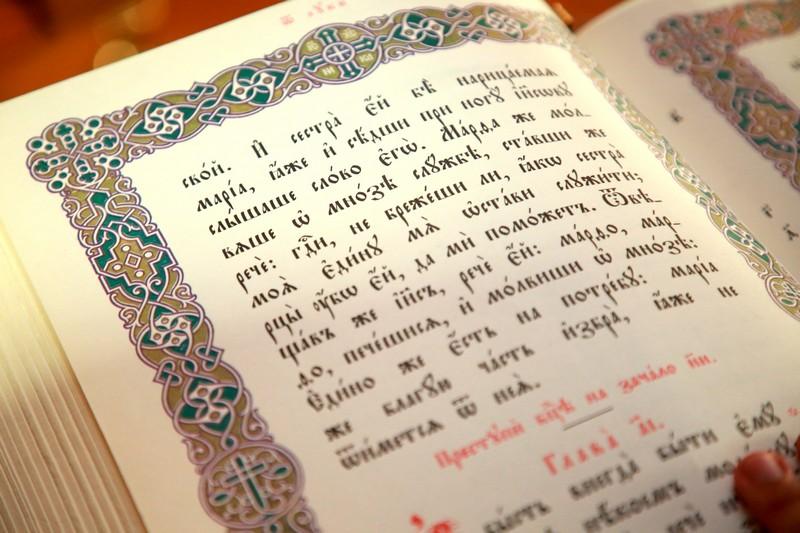 ѿ лꙋкѝ
ско́й. И҆ сестра̀ є҆́й бѣ̀ нарица́емаѧ
марі́а, ꙗ҆́же и҆ сѣ́дши при ногꙋ̀ і҆и҃сѡвꙋ
слы́шаше сло́во є҆гѡ̀. Ма́рѳа же мо́л-
вѧше ѡ҆ мно́зѣ слꙋ́жбѣ, ста́вши же
речѐ: гдⷭ҇и, не бреже́ши ли, ꙗ҆́кѡ сестра̀
моѧ̀ є҆ди́нꙋ мѧ̀ ѡ҆ста́ви слꙋжи́ти;
рцы̀ ᲂу҆̀бѡ є҆́й, да мѝ помо́жетъ. Ѿвѣ-
ща́въ же і҆и҃съ, речѐ є҆́й: ма́рѳо, ма́р-
ѳо, пече́шисѧ, и҆ мо́лвиши ѡ҆ мно́зѣ:
Є҆ди́но же є҆́сть на потре́бꙋ: марі́а
же благꙋ́ю ча́сть и҆збра̀, ꙗ҆́же не
ѿи́метсѧ ѿ неѧ̀.
Престꙋпѝ бцⷣѣ на зача́ло н҃и.
Глава̀ а҃і.
бы́сть внегда̀ бы́ти є҆мꙋ̀
нѣ́коемъ